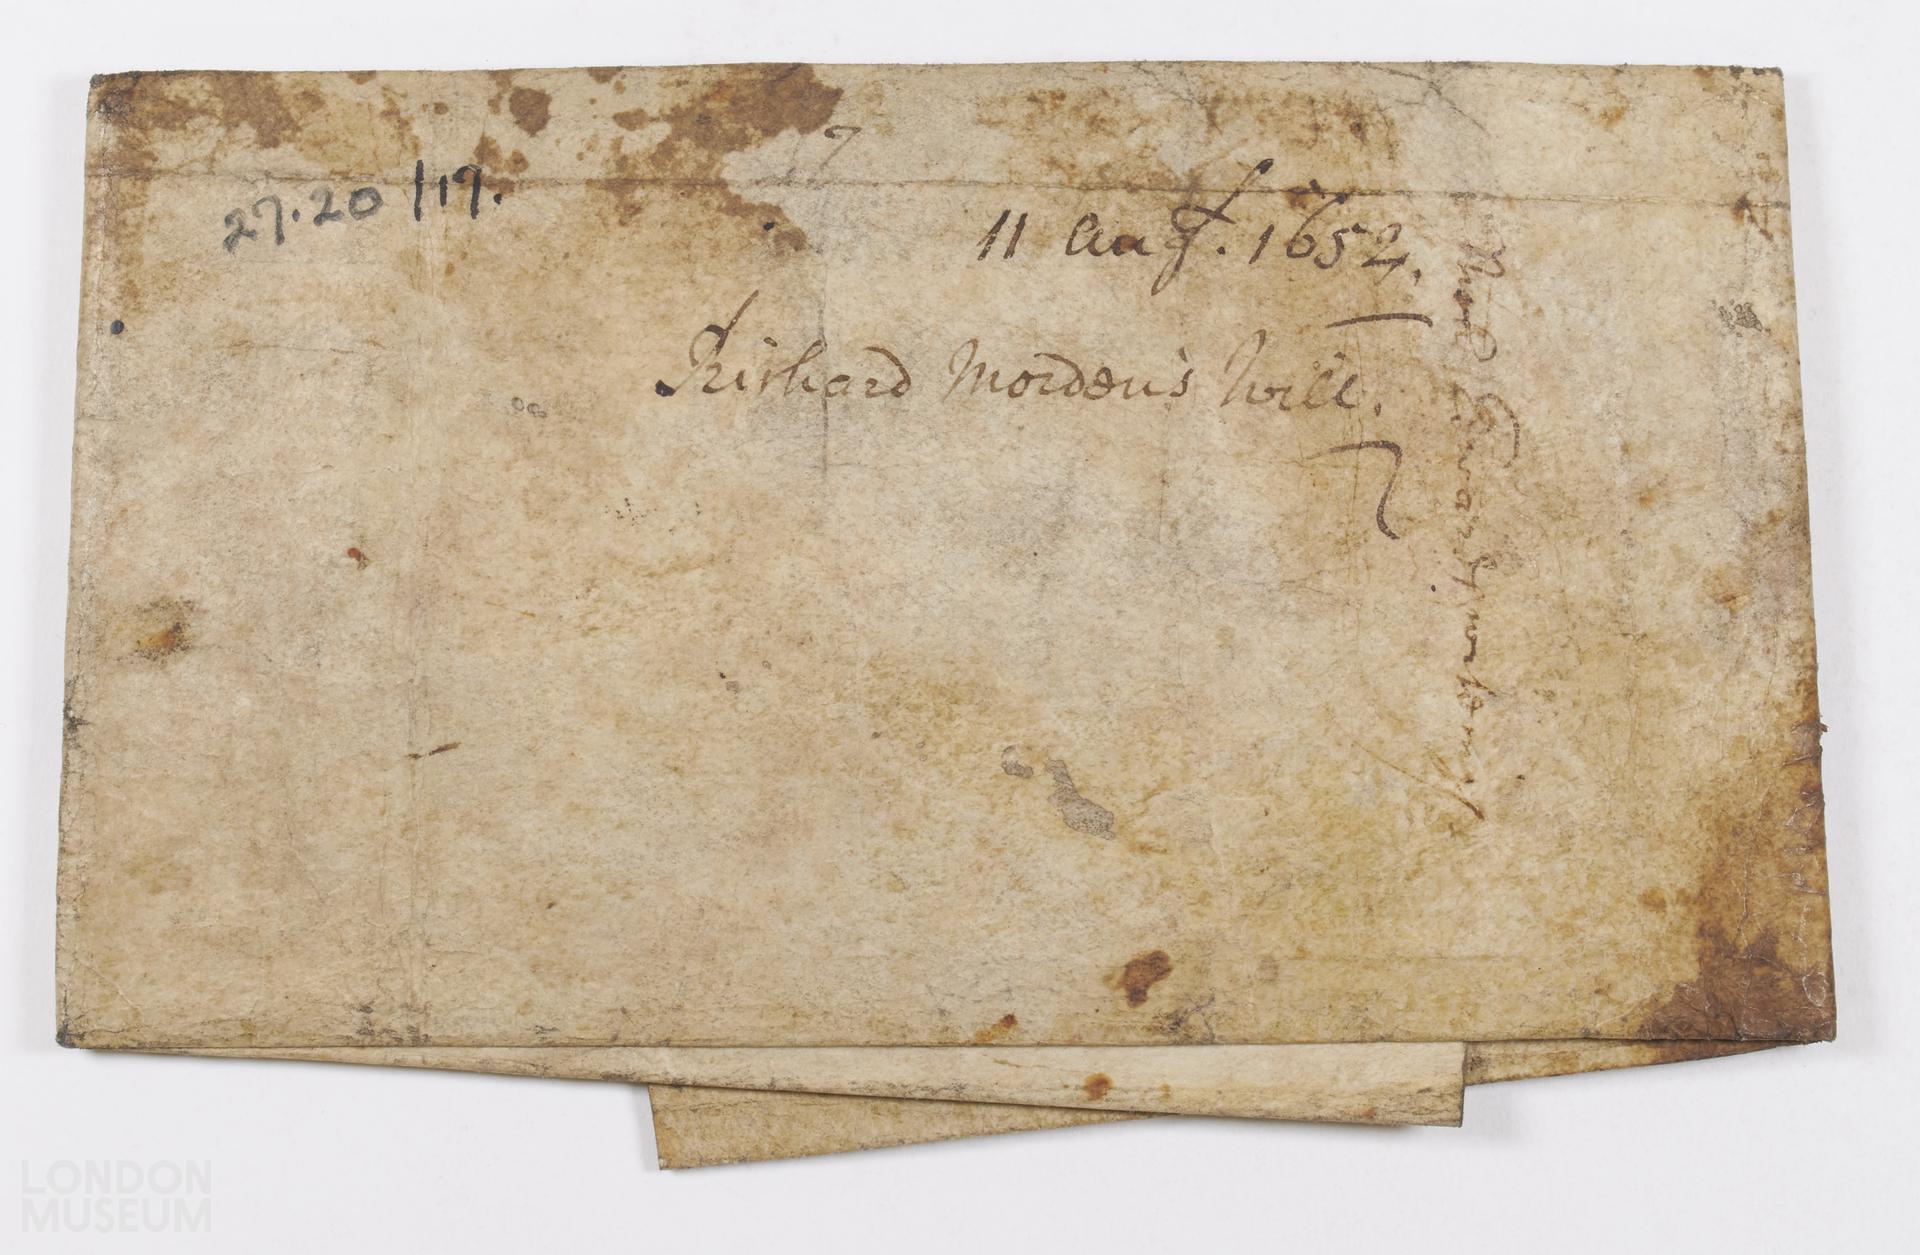 27.20/17.
17
11 Augt. 1652.
Richard Morden's Will.
LONDON
MUSEUM